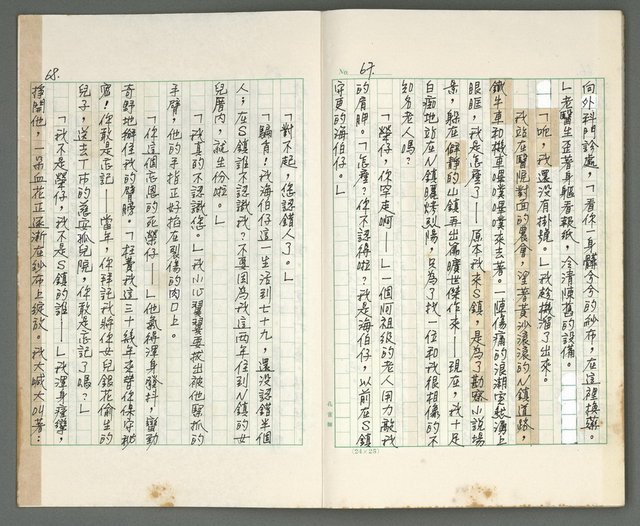 No. 67.
向外科門診處,「看你一身髒兮兮的紗布,在這裡換藥。
」老醫生歪著身軀看報紙,冷清陳舊的設備。
「呃,我還没有掛號。」我趁機溜了出來。
我站在醫院對面的農會,望著黃沙滾滾的N鎮道路,
鐵牛車和機車噗噗噗噗來去著。陳傷痛的浪潮宛越溝上
眼眶,我是怎麼了——原本我來S鎮,是為了勘察小說場
景,躲在僻靜的山鎮再出寫曠世傑作來——現在,我十足
白痴地站在N鎮曬烤玫陽,只為了找一位和我很相像的不
知名老人嗎?
「榮仔,你穿走啊——」一個阿祖級的老人用力敲我
的肩胛。「怎麼?你不認得啦?我是海伯仔,以前在S鎮
守更的海伯仔。」
68.
「對不起,您認錯人了。」
「騙肖!我海伯仔這一生活到七十九,還没認錯半個
人,在S鎮誰不認識我?不要因為我這兩年住到N鎮的女
兒厝内,就生份啦。」
「我真的不認識您。」我小心翼翼要拔出被他緊抓的
手臂,他的手指正好掐在裂傷的肉口上。
「你這個忘恩的死榮仔——」他氣得渾身發抖,蠻勁
奇野地掰住我的臂膀。「枉費我這三十幾年來替你保守祕
密!你敢是忘記——當年,你拜託我將你女兒銀花偷生的
兒子,送去T市的慈安孤兒院,你敢是忘記了嗎?」
「我不是榮仔,我不是S鎮的誰——」我渾身痙攣,
掙開他,一朵血花正逐漸在紗布上綻放。我大喊大叫著:
(24×25)